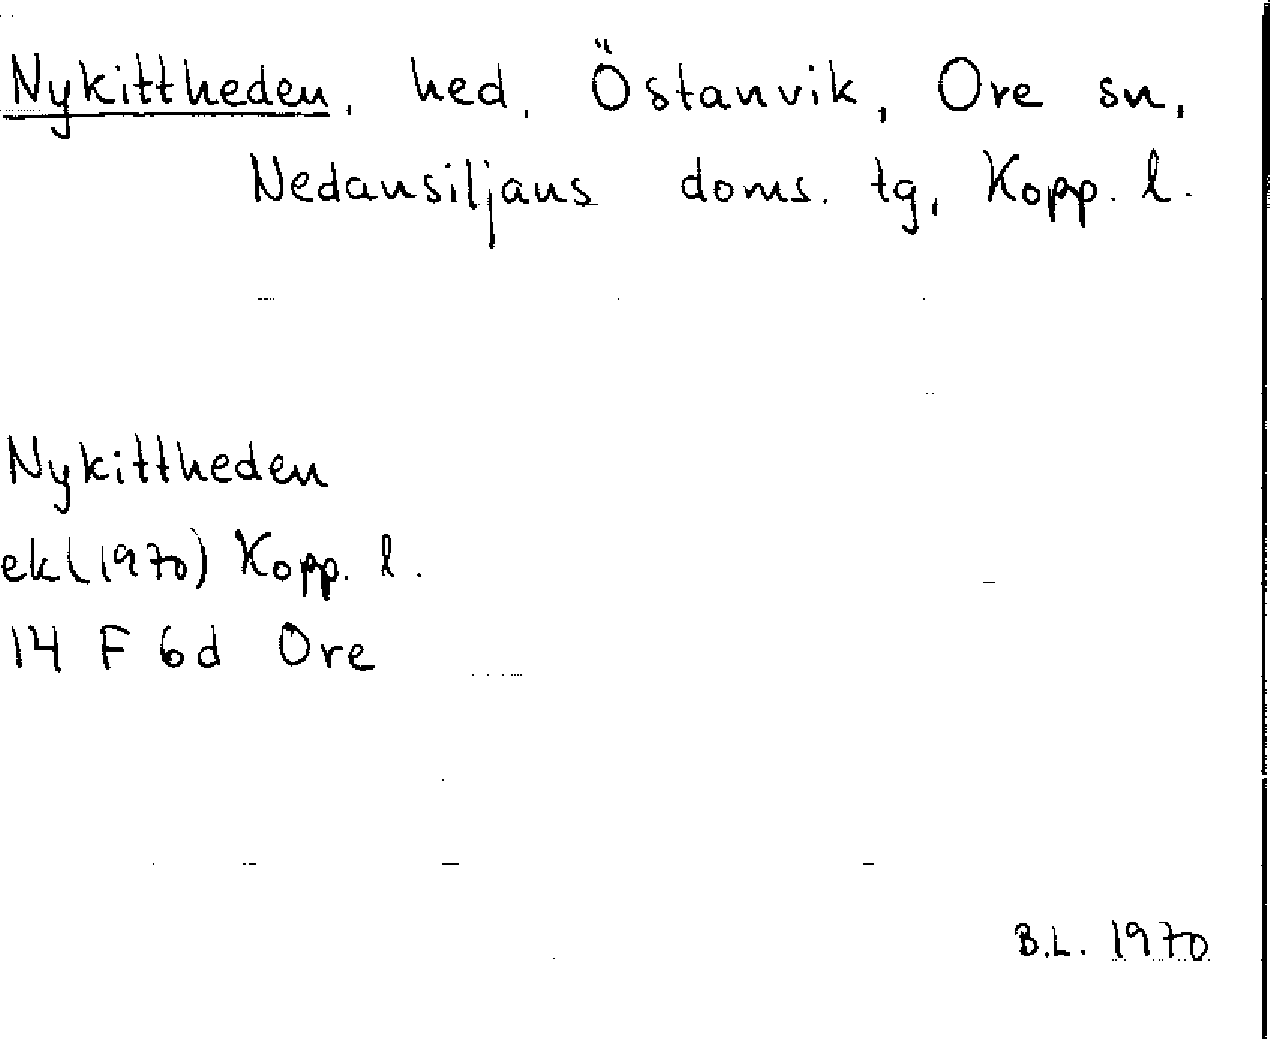 Nykittheden, hed, Östanvik, Ore sn,
Nedansiljans doms. tg, Kopp. l.
Nykittheden
ek (1970) Kopp. l.
14 F 6d Ore
B.L. 1970